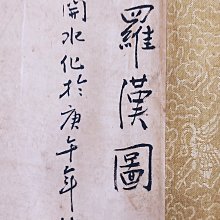 羅漢圖
開水化於庚午年